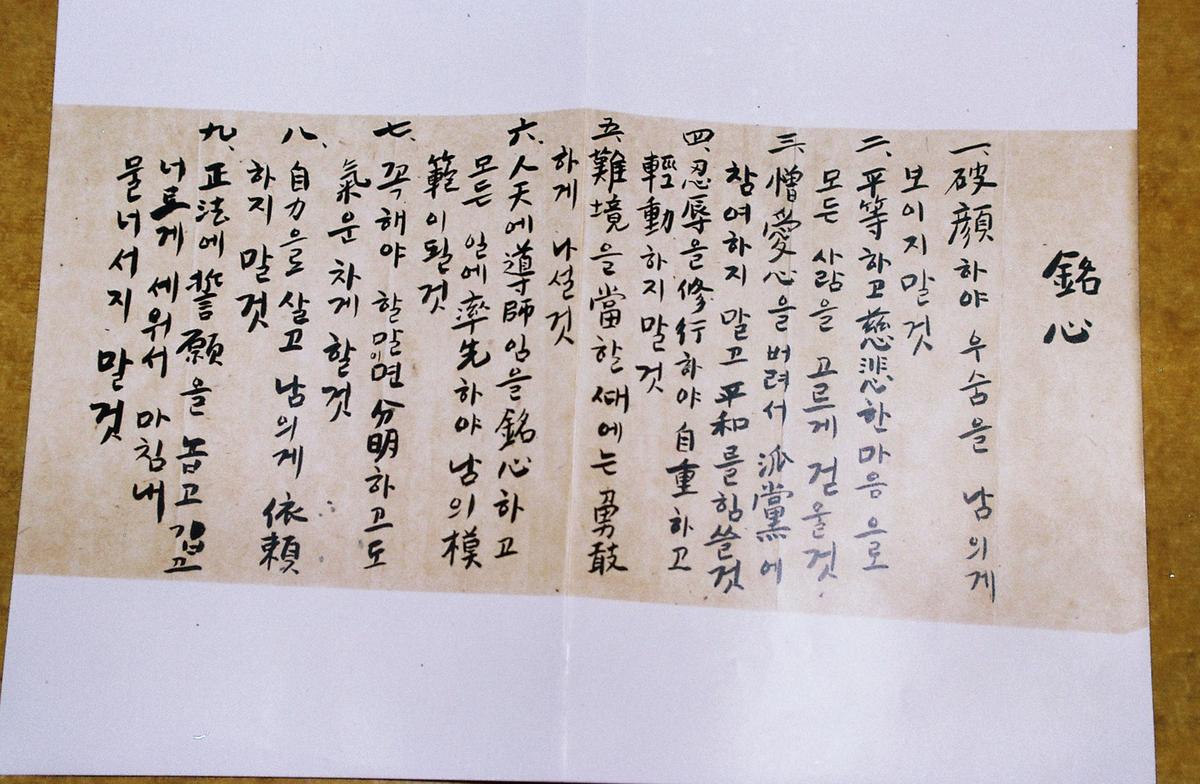 銘心
一、破顔하야 우슴을 남의게
보이지말것
二、平等하고 慈悲한마음으로
모든 사람을 고르게 걷울것
三、憎愛心을 버려서 派黨에
참여하지 말고 平和를 힘쓸것
四、忍辱을 修行하야 自重하고
輕動하지말것
五、難境을 當할 때에는 勇敢
하게 나설것
六、人天에 導師임을 銘心하고
모든 일에 率先하야 남의 模
範이될것
七、꼭해야 할말이면 分明하고도
氣운차게 할것
八、自力으로 살고 남의게 依賴
하지 말것
九、正法에 誓願을 놉고 깁고
너르게 세워서 마침내
물너서지 말것